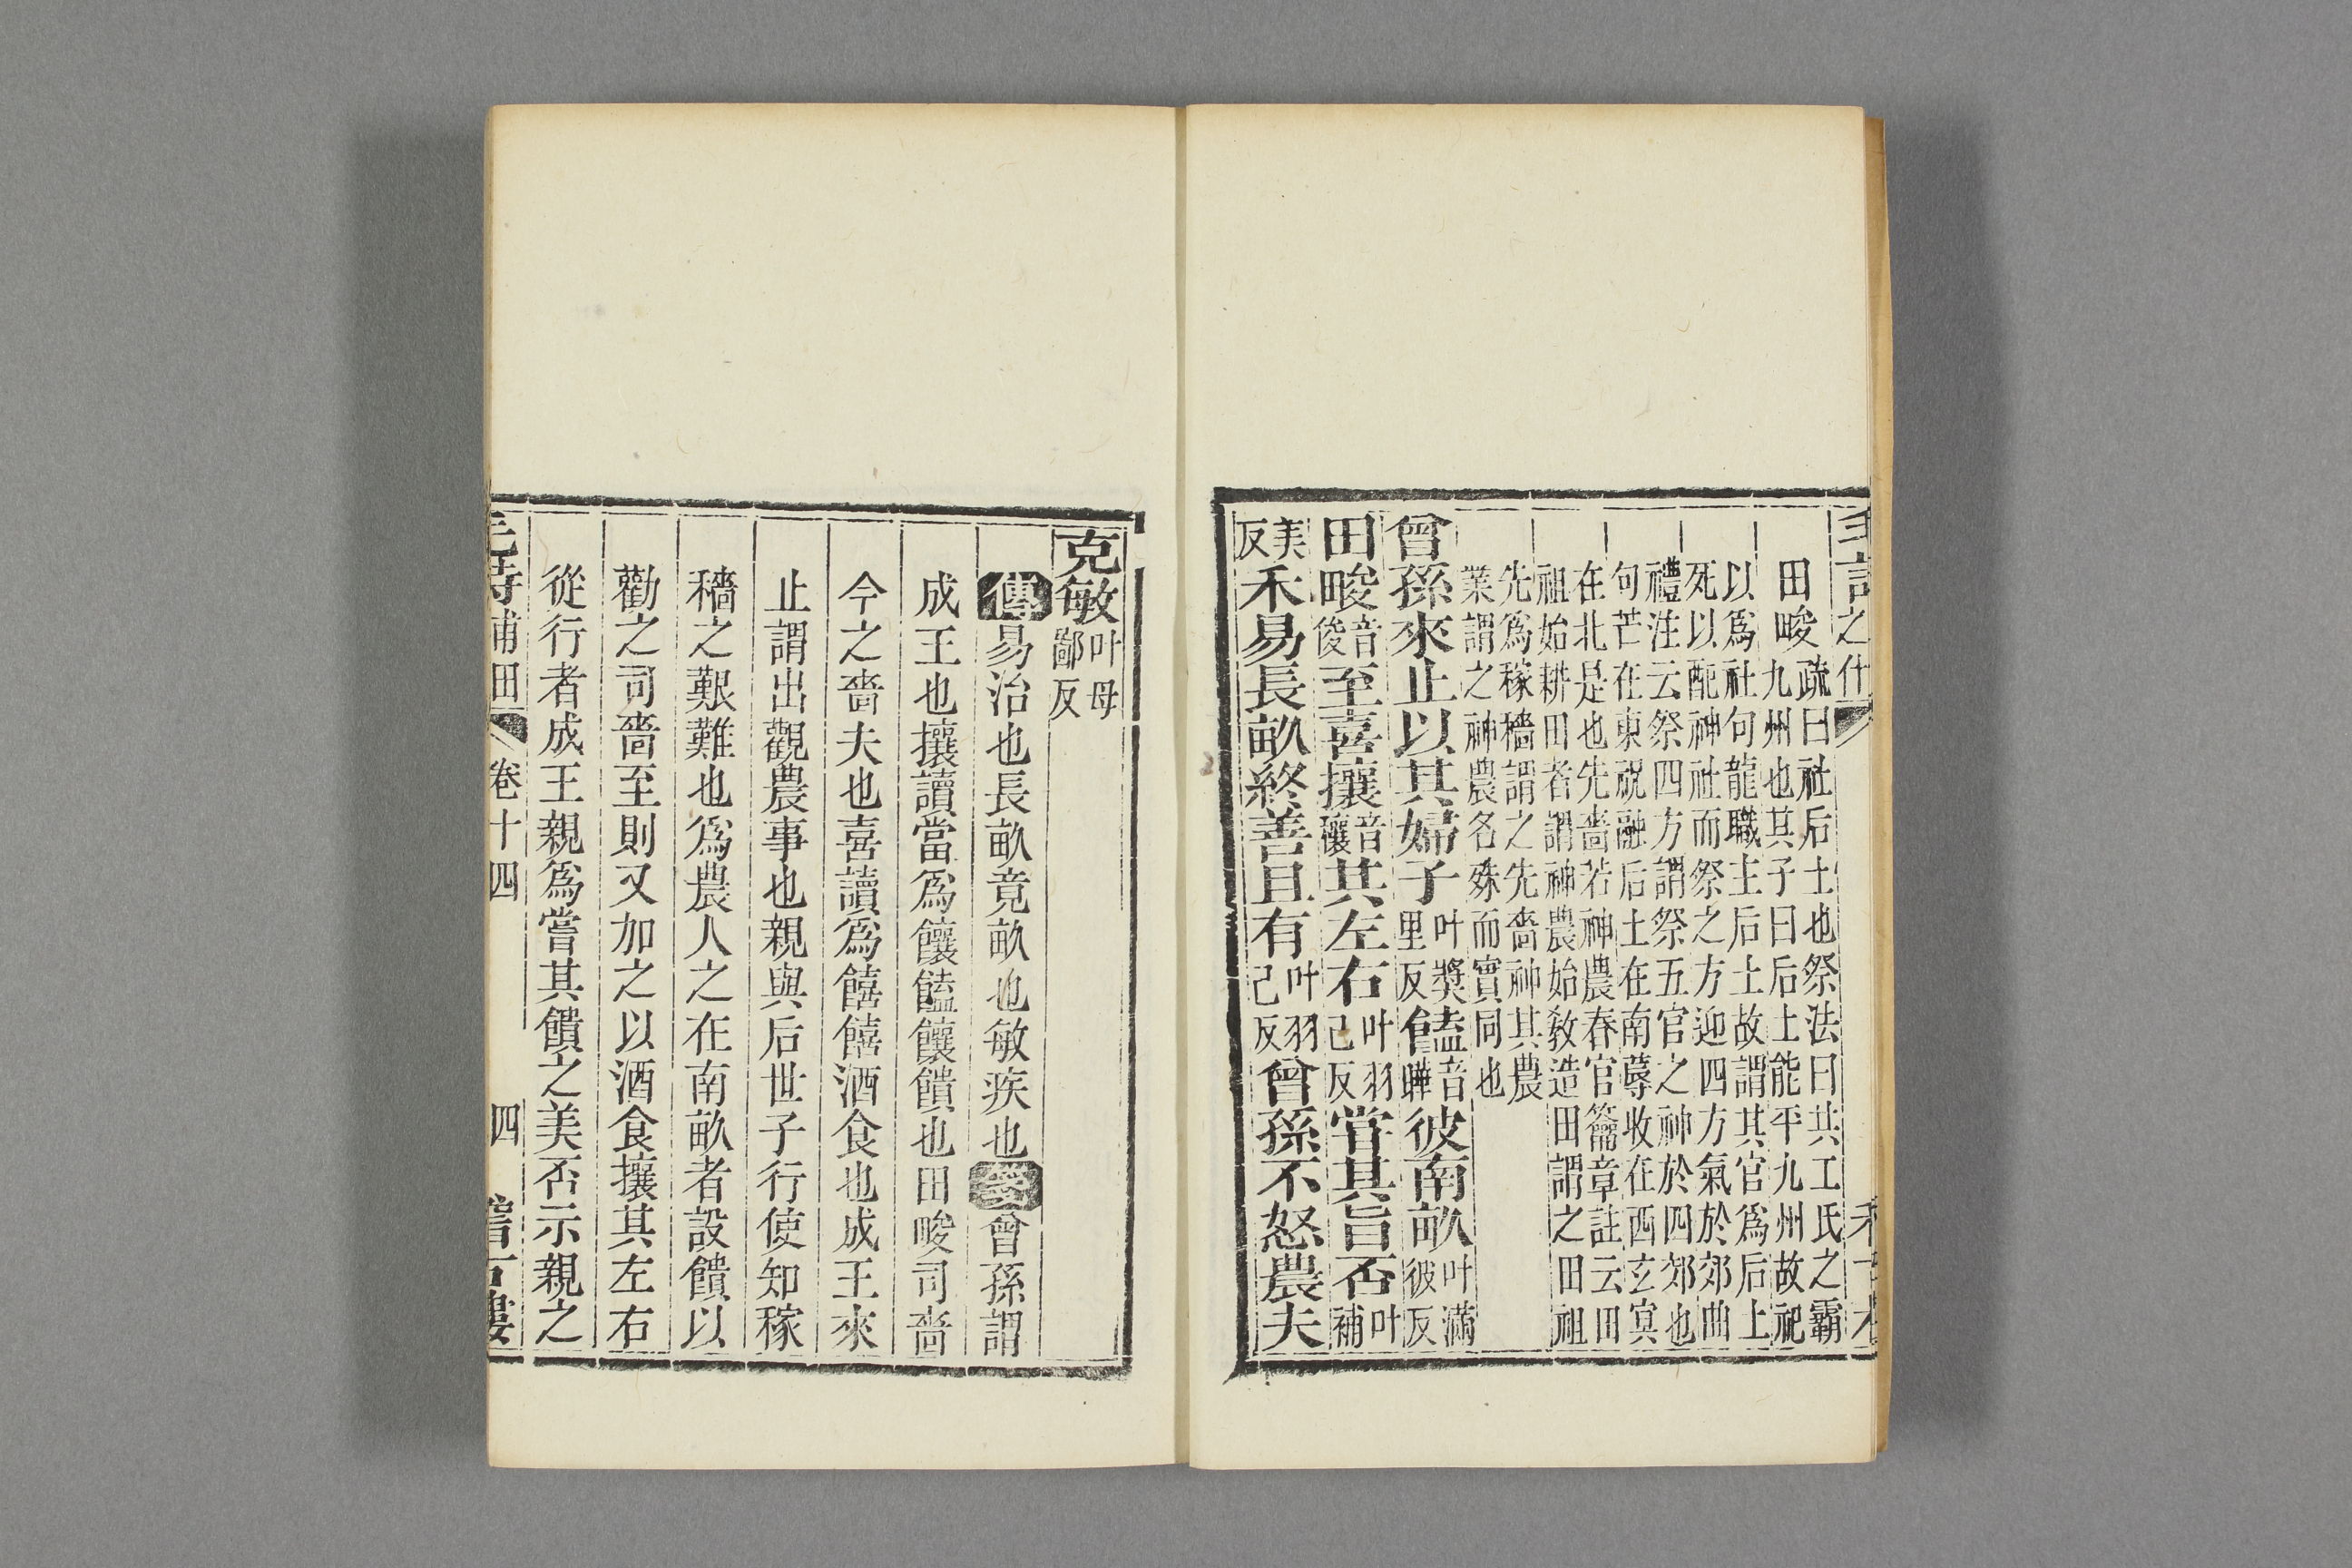 毛詩之什
田畯疏曰社后土也祭法曰共工氏之霸
九州也其子曰后土能平九州故祀
以爲社句龍職主后土故謂其官爲后土
死以配神社而祭之方迎四方氣於郊曲
禮注云祭四方謂祭五官之神於四郊也
句芒在東祝融后土在南蓐收在西玄冥
在北是也先嗇若神農春官籥章註云田
祖始耕田者謂神農始敎造田謂之田祖
先爲稼穡謂之先嗇神其農
業謂之神農名殊而實同也
曾孫來止以其婦子叶獎里反饁音曄彼南畝叶滿彼反
田畯音俊至喜攘音穰其左右叶羽己反嘗其旨否叶補
美反禾易長畝終善且有叶羽己反曾孫不怒農夫
克敏叶母鄙反
傳易治也長畝竟畝也敏疾也箋曾孫謂
成王也攘讀當爲饟饁饟饋也田畯司嗇
今之嗇夫也喜讀爲饎饎酒食也成王來
止謂出觀農事也親與后世子行使知稼
穡之艱難也爲農人之在南畝者設饋以
勸之司嗇至則又加之以酒食攘其左右
從行者成王親爲嘗其饋之美否示親之
毛詩甫田 卷十四 四